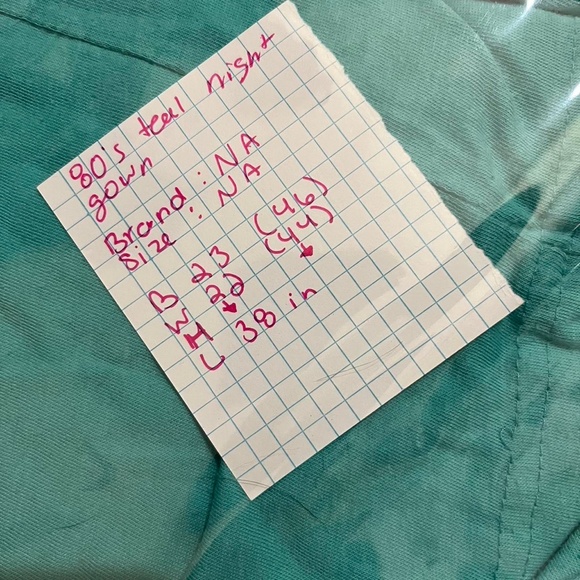 80's teal night
gown
Brand: NA
Size: NA
B 23 (46)
W 20 (44)
H ↓ ↓
L 38 in